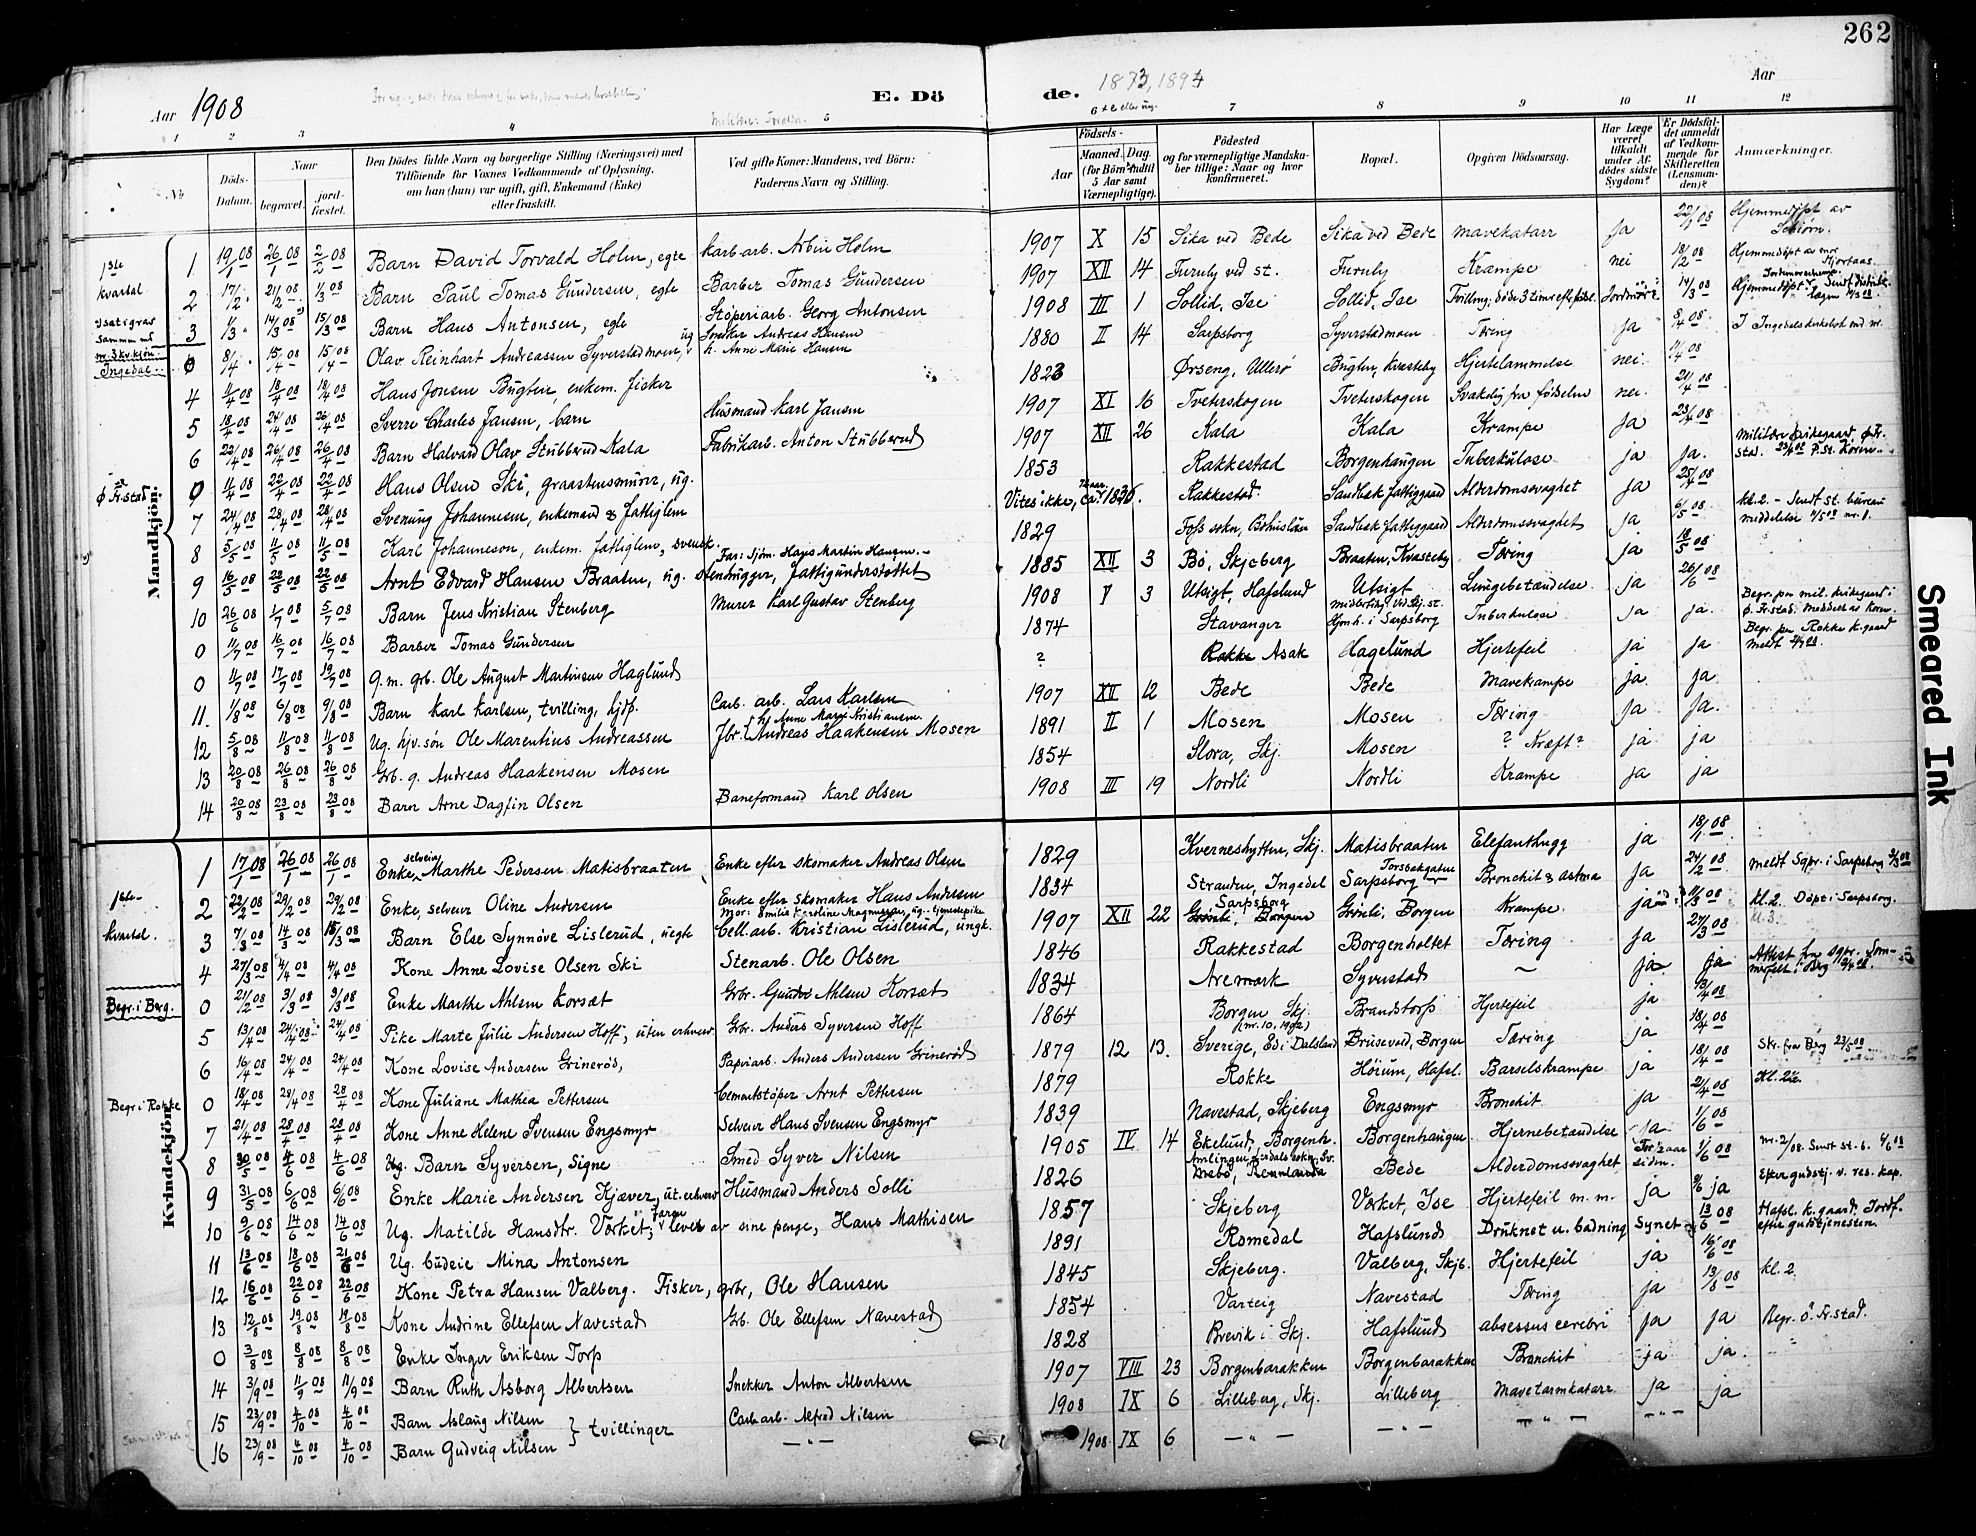 262
Aar 1908
E. Dö
de.
1873, 1894
Aar
1 2 3 4 5 6 7 8 9 10 11 12
№
Döds-Datum.
Naar
begravet.
jord-fæstet.
Den Dödes fulde Navn og borgerlige Stilling (Næringsvei) med
Tilföiende for Voxnes Vedkommende af Oplysning,
om han (hun) var ugift, gift, Enkemand (Enke)
eller fraskilt.
Ved gifte Koner: Mandens, ved Börn:
Faderens Navn og Stilling.
Födsels-
Aar
Maaned. Dag.
(for Börn indtil
5 Aar samt
Værnepligtige).
Födested
og for værnepligtige Mandska-
ber tillige: Naar og hvor
konfirmeret.
Bopæl.
Opgiven Dödsaarsag.
Har Læge
været
tilkaldt
under Af-
dödes sidste
Sygdom?
Er Dödsfal-
det anmeldt
af Vedkom-
mende for
Skifteretten
(Lensman-
den)?
Anmærkninger.
Mandkjön:
1ste kvartal
1 19/1 08 26/1 08 2/2 08 Barn David Torvald Holm, egte Karb.arb. Arbin Holm 1907 X 15 Sika ved Bede Sika ved Bede mavekatarr ja 22/1 08 Hjemmedøpt av
2 17/2 21/2 08 1/3 08 Barn Paul Tomas Gundersen, egte Barber Tomas Gundersen 1907 XII 14 Furuly ved st. Furuly Krampe nei 18/2 08 Hjemmedøpt av
3 1/3 14/3 08 15/3 08 Barn Hans Antonsen, egte Støperiarb. Georg Antonsen 1908 III 1 Sollid, Ise Sollid, Ise Tvilling; døde 3 timer eft. føds. Jordmor 14/3 08 Hjemmedøpt
nr. 3 kv.kjøn. Ingedal
0 8/4 15/4 08 15/4 08 Olav Reinhart Andreassen Syverstadmoen, ug Snekker Andreas Hansen h. Anne Marie Hansen 1880 II 14 Sarpsborg Syverstadmoen Tæring ja 8/4 08 I Ingedals
4 11/4 08 18/4 08 18/4 08 Hans Jonsen Bugten, enkem. fisker 1823 Ørseng, Ullerø Bugten, Kvasteby Hjertelammelse nei. 11/4 08
5 18/4 08 24/4 08 26/4 08 Sverre Charles Jansen, barn Husmand Karl Jansen 1907 XI 16 Tveterskogen Tveterskogen Svakelig fra fødselen nei. 21/4 08
6 22/4 08 26/4 08 26/4 08 Barn Halvard Olav Stubberud Kala Fabrikarb. Anton Stubberud 1907 XII 26 Kala Kala Krampe ja 23/4 08
Ø. Fr.stad
0 11/4 08 22/4 08 22/4 08 Hans Olsen Ski, graastensmurer, ug. 1853 Rakkestad Borgenhaugen Tuberkulose ja ja. Militære kirkegaard, Ø. Fr.stad.
7 24/4 08 28/4 08 28/4 08 Svenung Johannesen, enkemand & fattiglem Vites ikke, ca. 1830. Rakkestad. Sandbak fattiggaard Alderdomssvaghet ja 25/4 08
8 5/5 08 11/5 08 11/5 08 Karl Johanneson, enkem. fattiglem, svensk. 1829 Foss sokn, Bohuslän Sandbak fattiggaard Alderdomssvaghet ja 6/5 08 kl. 2. - Sendt st. bureau meddelelse
9 16/5 08 22/5 08 22/5 08 Arnt Edvard Hansen Braaten, ug. stenhugger, fattigunderstøttet Far: Sjøm. Hans Martin Hansen. 1885 XII 3 Bø, Skjeberg Braaten, Kvasteby Tæring ja 18/5 08
10 26/6 08 1/7 08 5/7 08 Barn Jens Kristian Stenberg Murer Karl Gustav Stenberg 1908 V 3 Utsigt, Hafslund Utsigt Lungebetændelse ja 26/6 08
0 11/7 08 16/7 08 16/7 08 Barber Tomas Gundersen 1874 Stavanger midlertidig ved Skj. st. Hjemh. i Sarpsborg Tuberkulose ja ja Begr. paa mil. kirkegaard i Ø. Fr.stad.
0 11/7 08 17/7 08 19/7 08 g. m. grb. Ole August Martinsen Haglund ? Rokke Asak Hagelund Hjertefeil ja ja Begr. paa Rokke k.gaard
11 1/8 08 6/8 08 9/8 08 Barn Karl Karlsen, tvilling, hjdp. Carb. arb. Lars Karlsen 1907 XII 12 Bede Bede Mavekrampe ja ja
12 5/8 08 11/8 08 11/8 08 Ug. hjv. søn Ole Marentius Andreassen Jbr. Andreas Haakensen Mosen h. Anne Marie Kristiansen 1891 II 1 Mosen Mosen Tæring ja ja.
13 20/8 08 26/8 08 26/8 08 Grb. g. Andreas Haakensen Mosen 1854 Slora, Skj. Mosen ? Kræft? ja ja
14 20/8 08 23/8 08 23/8 08 Barn Arne Dagfin Olsen Baneformand Karl Olsen 1908 III 19 Nordli Nordli Krampe ja ja
Kvindekjön:
1ste kvartal.
1 17/1 08 26/1 08 26/1 08 Enke, selveier Marthe Pedersen Matisbraaten Enke efter skomaker Andreas Olsen 1829 Kverneshytten, Skj. Matisbraaten Elefanthugg ja 18/1 08
2 22/2 08 29/2 08 29/2 08 Enke, selveier Oline Andersen Enke efter skomaker Hans Andersen 1834 Stranden, Ingedal Torsbakgaten Sarpsborg Bronchit & astma ja 24/2 08 Meldt Sgpr. i Sarpsborg
3 7/3 08 14/3 08 15/3 08 Barn Else Synnøve Lislerud, uegte Mor: Emilie Karoline Magnussen, ug. tjenestepike Cell.arb. Kristian Lislerud, ungk. 1907 XII 22 Sarpsborg Grinli, Borgen Grinli, Borgen Krampe ja 11/3 08 kl. 2. Døpt i Sarpsborg.
4 27/3 08 4/4 08 4/4 08 Kone Anne Lovise Olsen Ski Stenarb. Ole Olsen 1846 Rakkestad Borgenholtet Tæring ja 27/3 08 kl. 3.
Begr. i Berg.
0 21/2 08 3/3 08 9/3 08 Enke Marthe Ahlsen Korsæt Grbr. Gunder Ahlsen Korsæt 1834 Aremark Syverstad ~ ja ja Attest fra sgpr.
5 13/4 08 24/4 08 24/4 08 Pike Marte Julie Andersen Hoff, uten erhverv Grbr. Anders Syversen Hoff 1864 Borgen Skj. (nr. 10, 1902) Brandstorp Hjertefeil ja 13/4 08
6 16/4 08 24/4 08 24/4 08 Kone Lovise Andersen Grinerød, Papirarb. Anders Andersen Grinerød 1879 12 13. Sverige, Ed i Dalsland Brusevod, Borgen Tæring ja 18/4 08
Begr. i Rokke
0 18/4 08 28/4 08 28/4 08 Kone Juliane Mathea Pettersen Cementstøper Arnt Pettersen 1879 Rokke Höium, Hafsl. Barselskrampe ja 18/4 08 Skr. fra Berg 23/5 08
7 21/4 08 28/4 08 28/4 08 Kone Anne Helene Svensen Engsmyr Selveier Hans Svensen Engsmyr 1839 Navestad, Skjeberg Engsmyr Bronchit ja 21/4 08
8 30/5 08 4/6 08 4/6 08 Ug. Barn Syversen, Signe Smed Syver Nilsen 1905 IV 14 Ekelund, Borgenh. Borgenhaugen Hjernebetændelse ja 1/6 08
9 31/5 08 6/6 08 6/6 08 Enke Marie Andersen Kjæver, ut. erhverv Husmand Anders Solli 1826 Bede Alderdomssvaghet For 2 aar siden. 1/6 08
10 9/6 08 14/6 08 14/6 08 Ug. Matilde Hansdtr. Værket, lever av sine penge, Faren Hans Mathisen 1857 Skjeberg Værket, Ise Hjertefeil m. m. ja ja Efter gudstj. v. res. kap.
11 13/6 08 18/6 08 21/6 08 Ug. budeie Mina Antonsen 1891 Romedal Hafslund Druknet u. badning Synet 13/6 08 Hafsl. k.gaard. Jordf. efter gudstjenesten.
12 16/6 08 22/6 08 22/6 08 Kone Petra Hansen Valberg. Fisker, grbr, Ole Hansen 1845 Skjeberg. Valberg, Skjb. Hjertefeil ja 16/6 08
13 12/8 08 19/8 08 19/8 08 Kone Andrine Ellefsen Navestad Grb. Ole Ellefsen Navestad 1854 Varteig Navestad Tæring ja 13/8 08 kl. 2
0 3/8 08 8/8 08 8/8 08 Enke Inger Eriksen Torp 1828 Brevik i Skj. Hafslund absessus cerebri ja ja Begr. Ø. Fr.stad.
14 3/9 08 11/9 08 11/9 08 Barn Ruth Asborg Albertsen Snekker Anton Albertsen 1907 VIII 23 Borgenbarakken Borgenbarakken Bronchit ja ja.
15 23/9 08 4/10 08 4/10 08 Barn Aslaug Nilsen } tvillinger Carb.arb. Alfred Nilsen 1908 IX 6 Lilleberg, Skj. Lilleberg Mavetarmkatarr ja ja
16 23/9 08 4/10 08 4/10 08 Barn Gudveig Nilsen — " — 1908 IX 6 — " — — " — — " — — " —
Smeared Ink